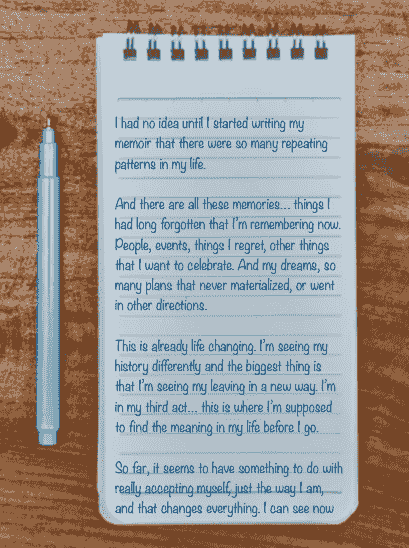 I had no idea until I started writing my
memoir that there were so many repeating
patterns in my life.
And there are all these memories... things I
had long forgotten that I'm remembering now.
People, events, things I regret, other things
that I want to celebrate. And my dreams, so
many plans that never materialized, or went
in other directions.
This is already life changing. I'm seeing my
history differently and the biggest thing is
that I'm seeing my leaving in a new way. I'm
in my third act... this is where I'm supposed
to find the meaning in my life before I go.
So far, it seems to have something to do with
really accepting myself, just the way I am,
and that changes everything. I can see now